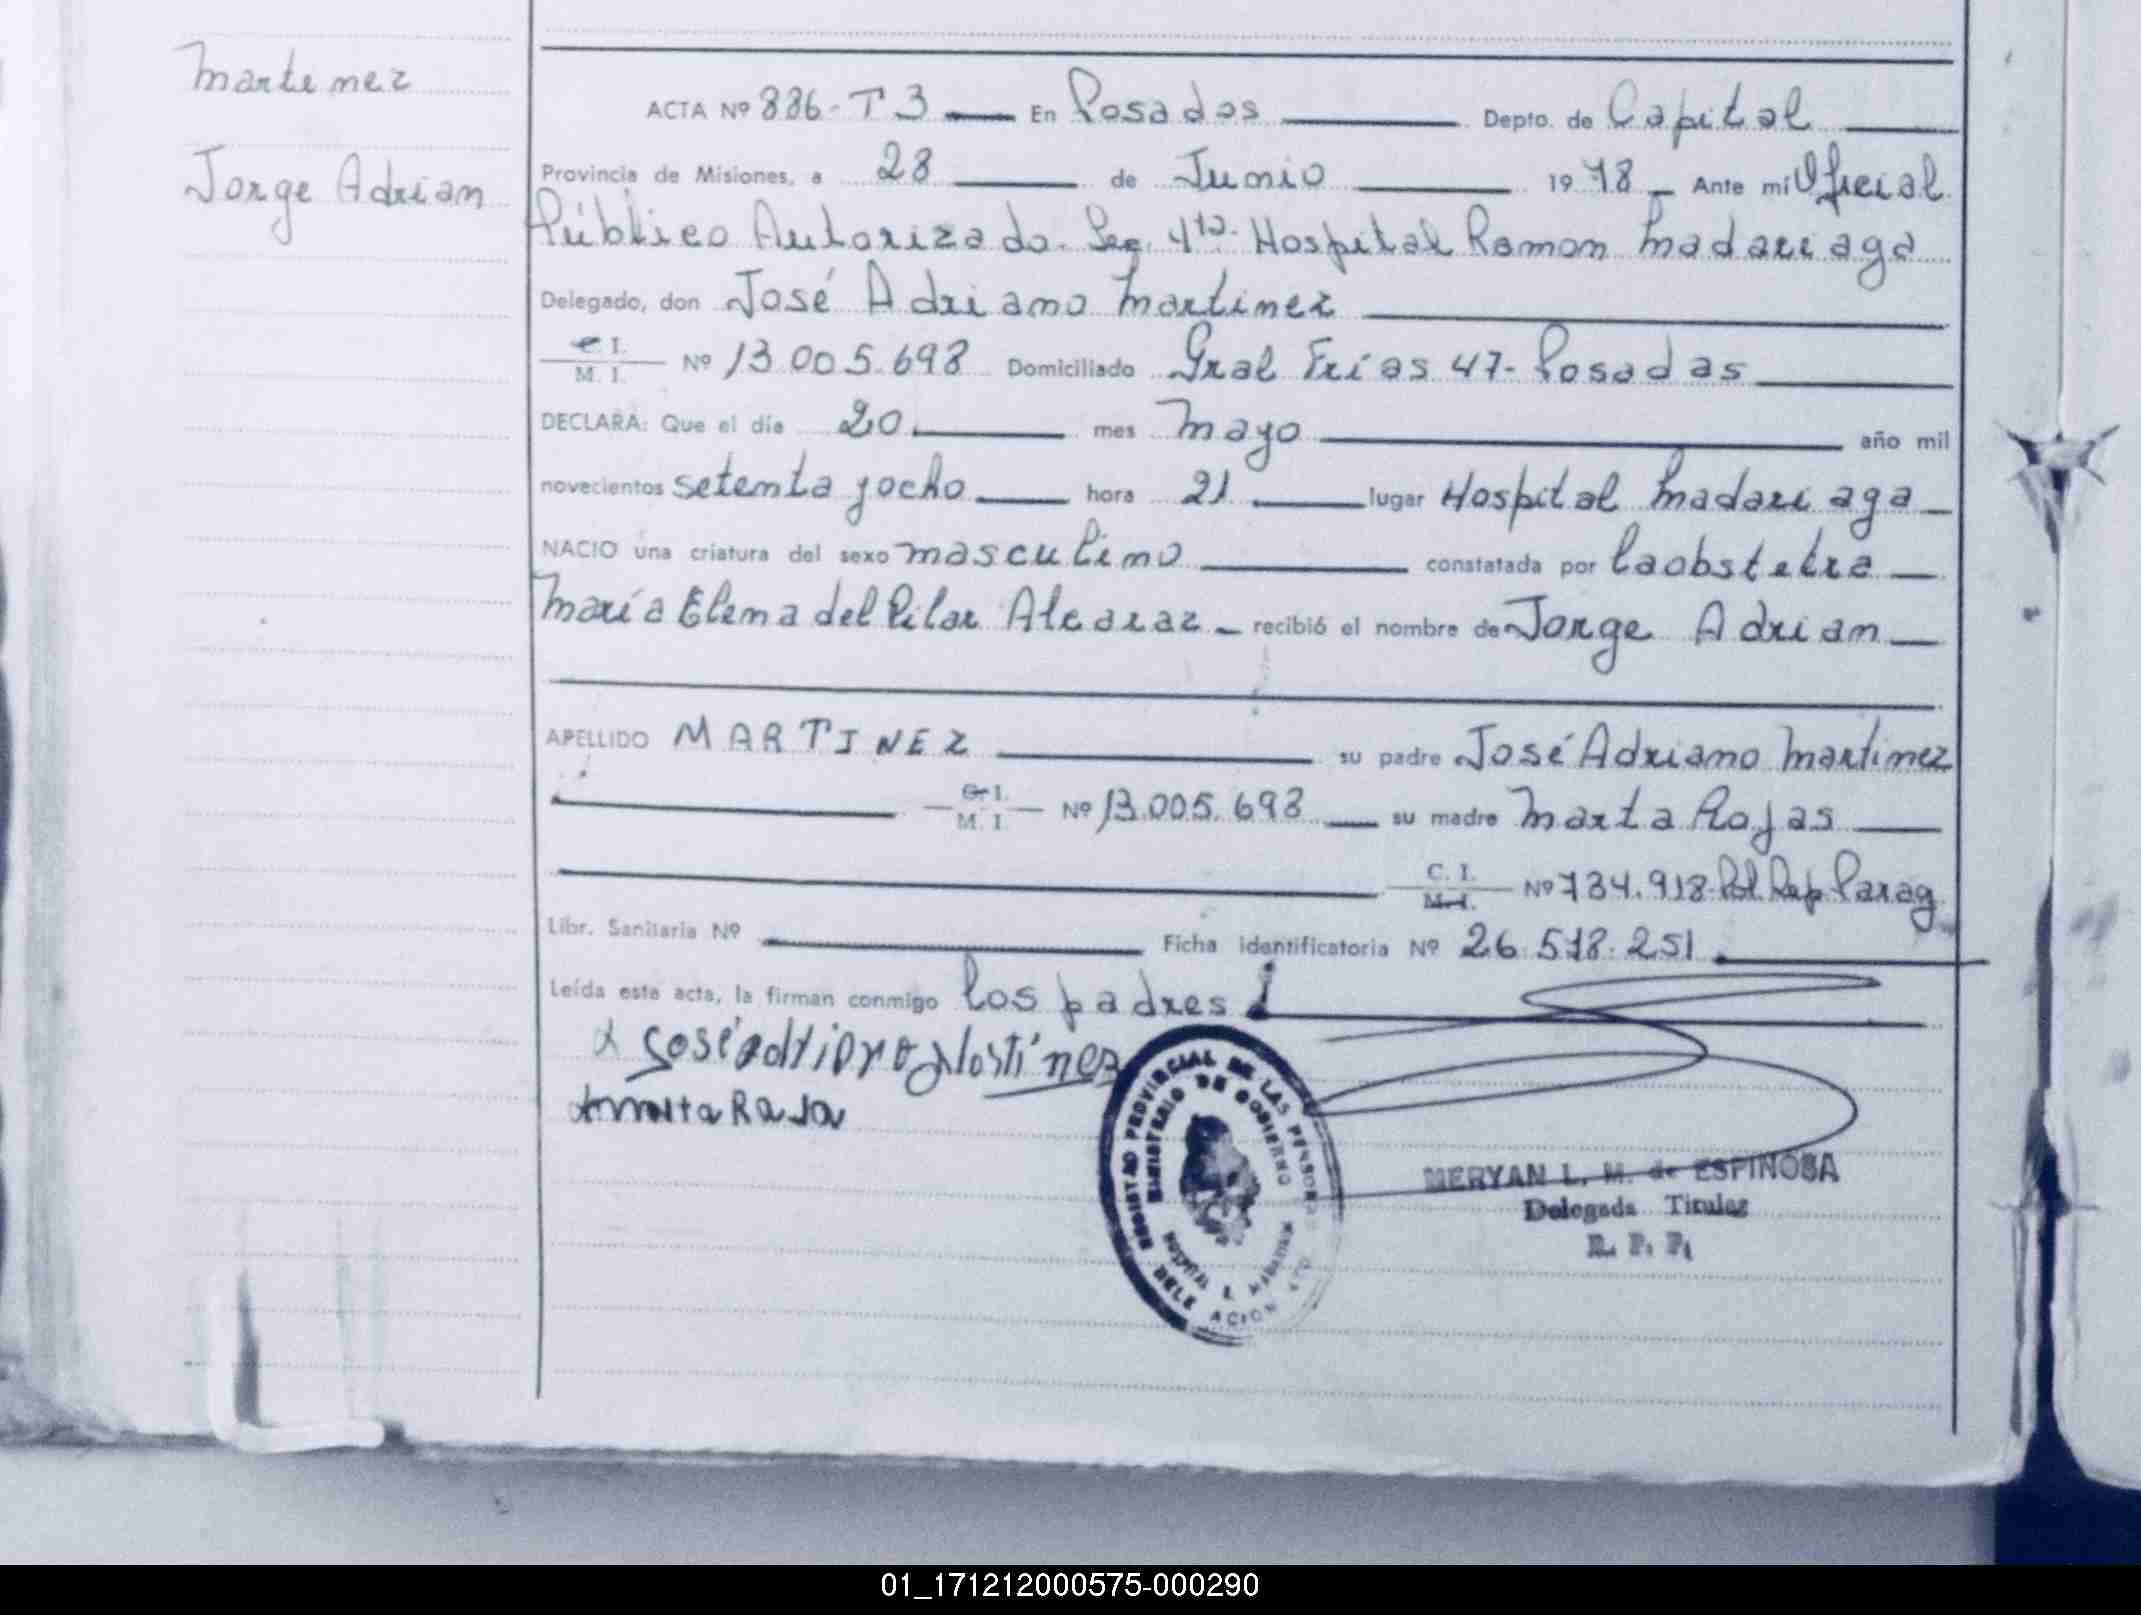 Martinez
Jorge Adrian
ACTA Nº 886-T3 En Posadas Depto. de Capital
Provincia de Misiones, a 28 de Junio 1978 Ante mi Oficial
Público Autorizado. Sec. 4ta. Hospital Ramon Madariaga
Delegado, don José Adriano Martinez
C.I. M. I. Nº 13.005.698 Domiciliado Gral Frías 47-Posadas
DECLARA: Que el día 20 mes Mayo año mil
novecientos setenta y ocho hora 21 lugar Hospital Madariaga
NACIO una criatura del sexo masculino constatada por la obstetra
María Elena del Pilar Alcaraz recibió el nombre de Jorge Adrian
APELLIDO MARTINEZ su padre José Adriano Martinez
C.I. M. I. Nº 13.005.698 su madre Marta Rojas
C. I. M.I. Nº 734.918-Pol. Rep. Parag
Libr. Sanitaria Nº Ficha identificatoria Nº 26.518.251
Leída esta acta, la firman conmigo los padres
José adriano Martínez
REGISTRO PROVINCIAL DE LAS PERSONAS
MINISTERIO DE GOBIERNO
HOSPITAL R. MADARIAGA
DELEGACION
MERYAN L. M. de ESPINOSA
Delegada Titular
R. P. P.
01_171212000575-000290